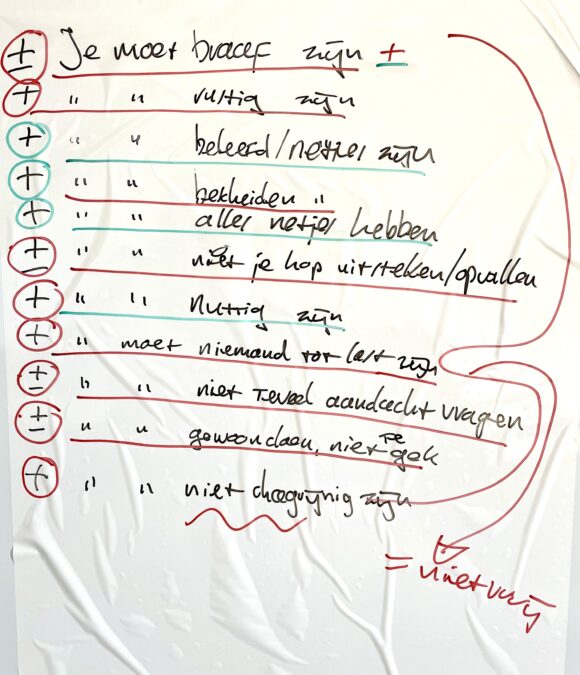 ± Je moet braaf zijn +
+ " " rustig zijn
+ " " beleefd/netjes zijn
+ " " bescheiden "
+ " " alles netjes hebben
± " " niet je kop uitsteken/opvallen
+ " " nuttig zijn
± " moet niemand tot last zijn
± " " niet teveel aandacht vragen
± " " gewoon doen, niet te gek
+ " " niet chagrijnig zijn
= niet vrij